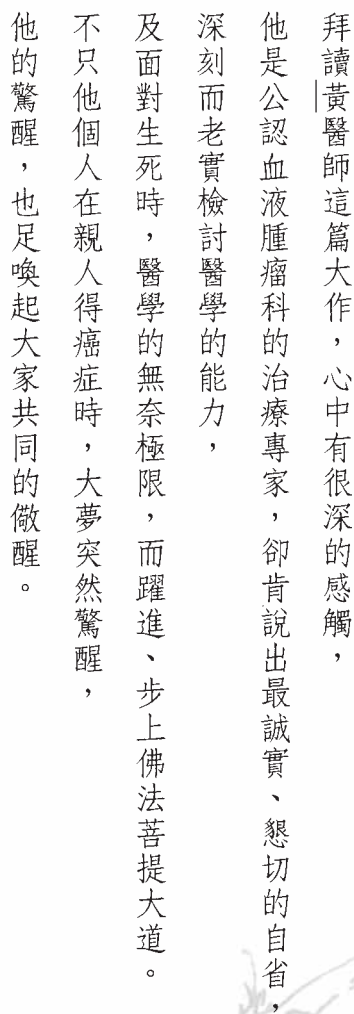 拜讀黃醫師這篇大作，心中有很深的感觸，
他是公認血液腫瘤科的治療專家，卻肯說出最誠實、懇切的自省，
深刻而老實檢討醫學的能力，
及面對生死時，醫學的無奈極限，而躍進、步上佛法菩提大道。
不只他個人在親人得癌症時，大夢突然驚醒，
他的驚醒，也足喚起大家共同的儆醒。